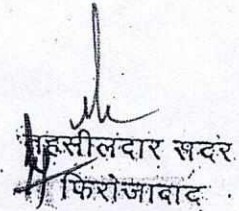 तहसीलदार सदर
फिरोजाबाद